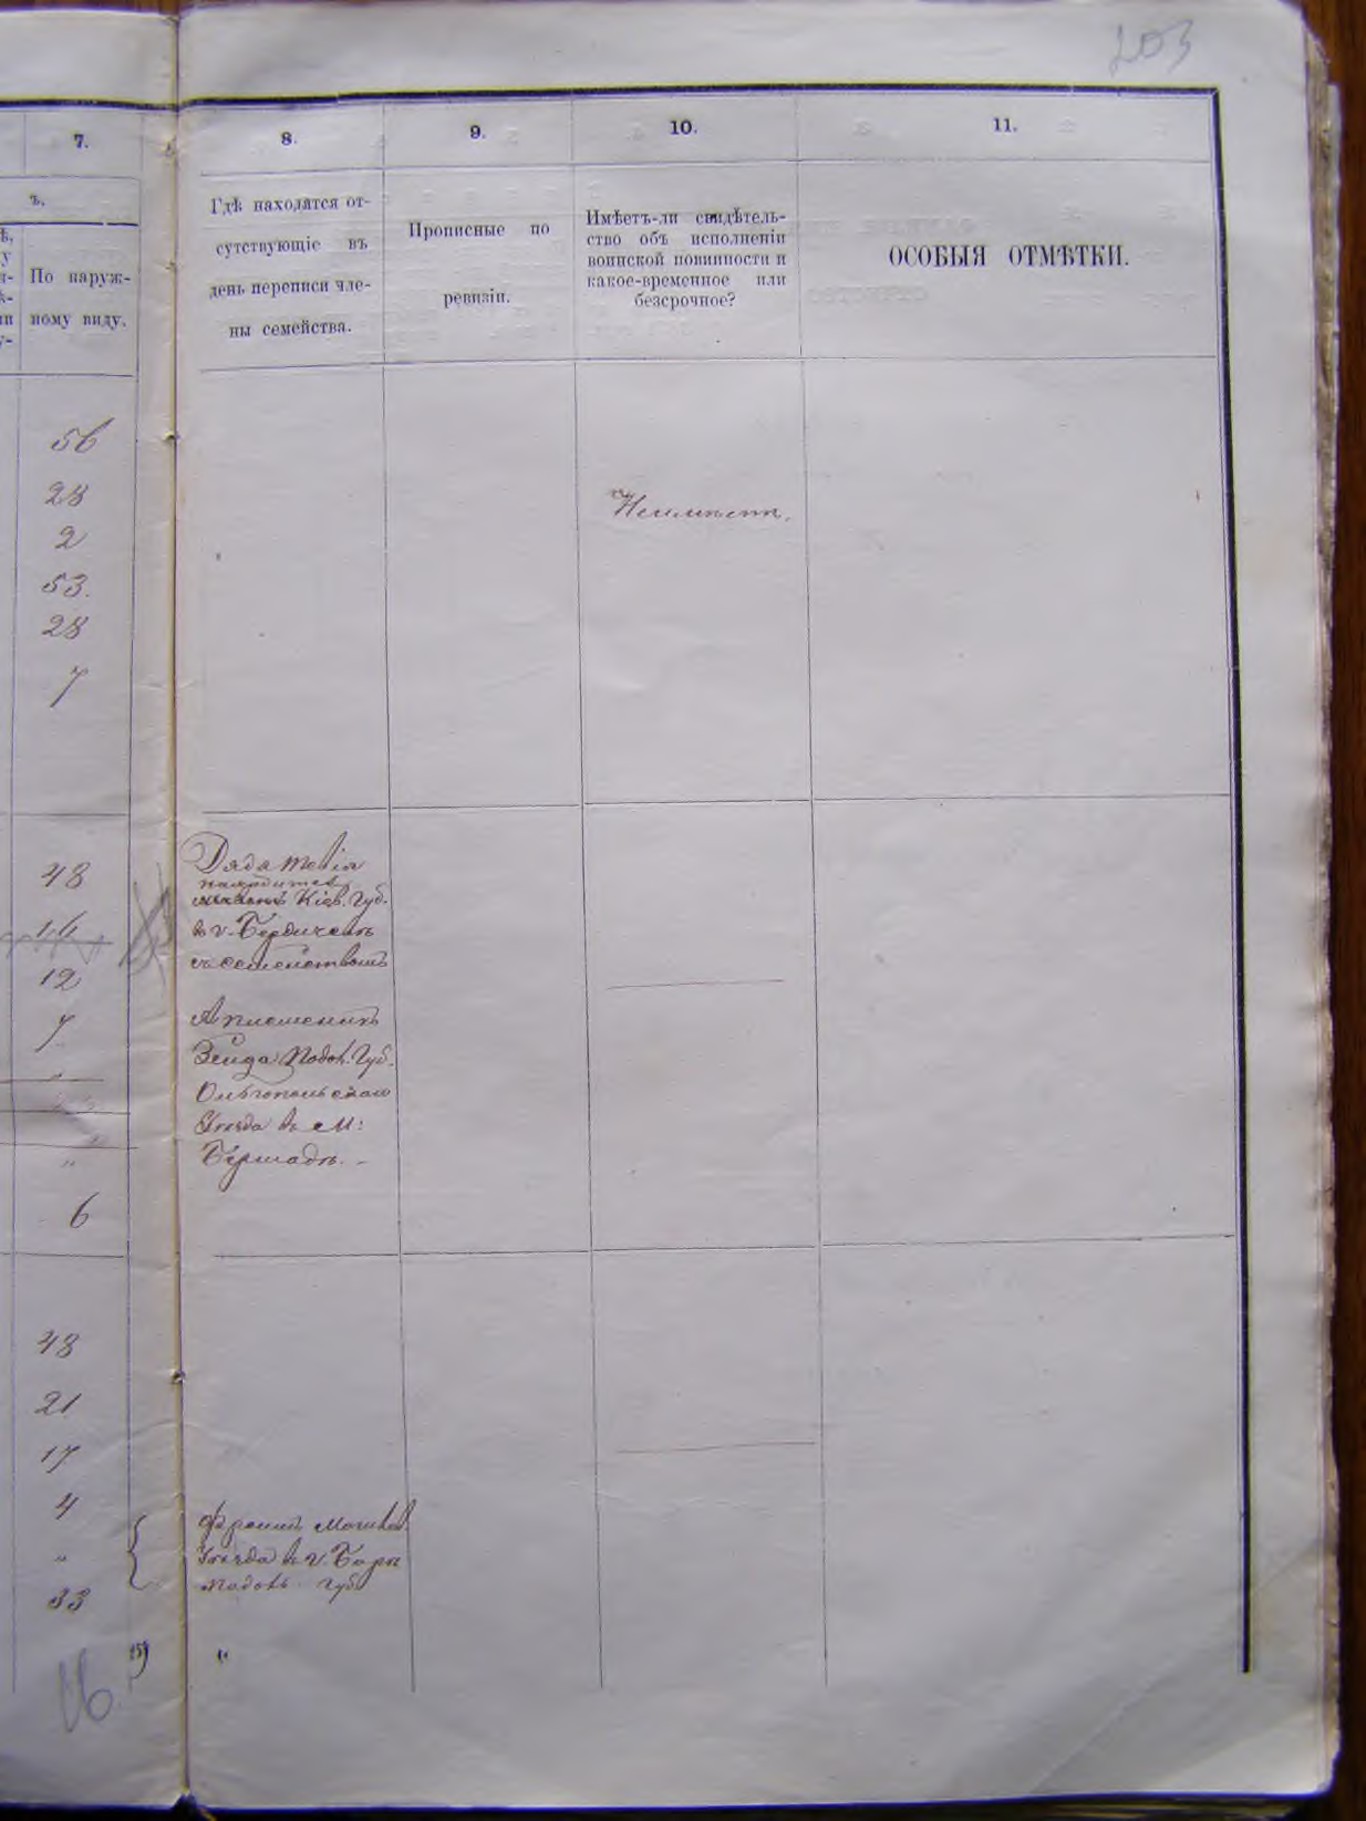 203
7.
8.
9.
10.
11.
ъ.
По наруж-
ному виду.
Гдѣ находятся от-
сутствующіе въ
день переписи чле-
ны семейства.
Прописные по
ревизіи.
Имѣетъ-ли свидѣтель-
ство объ исполненіи
воинской повинности и
какое-временное или
безсрочное?
ОСОБЫЯ ОТМѢТКИ.
56
28
2
53.
28
7
Неимѣетъ.
48
14
12
7
"
"
6
Дядя Товія
находится
Кіев. Губ.
в г. Бердичевѣ
съ семействомъ
А племеникъ
Зейда Подол. Губ.
Ольгопольскаго
Уѣзда въ М:
Бершадѣ. –
48
21
17
4
"
33
Могилев.
Уѣзда в г. Барѣ
Подоль. губ
16
"